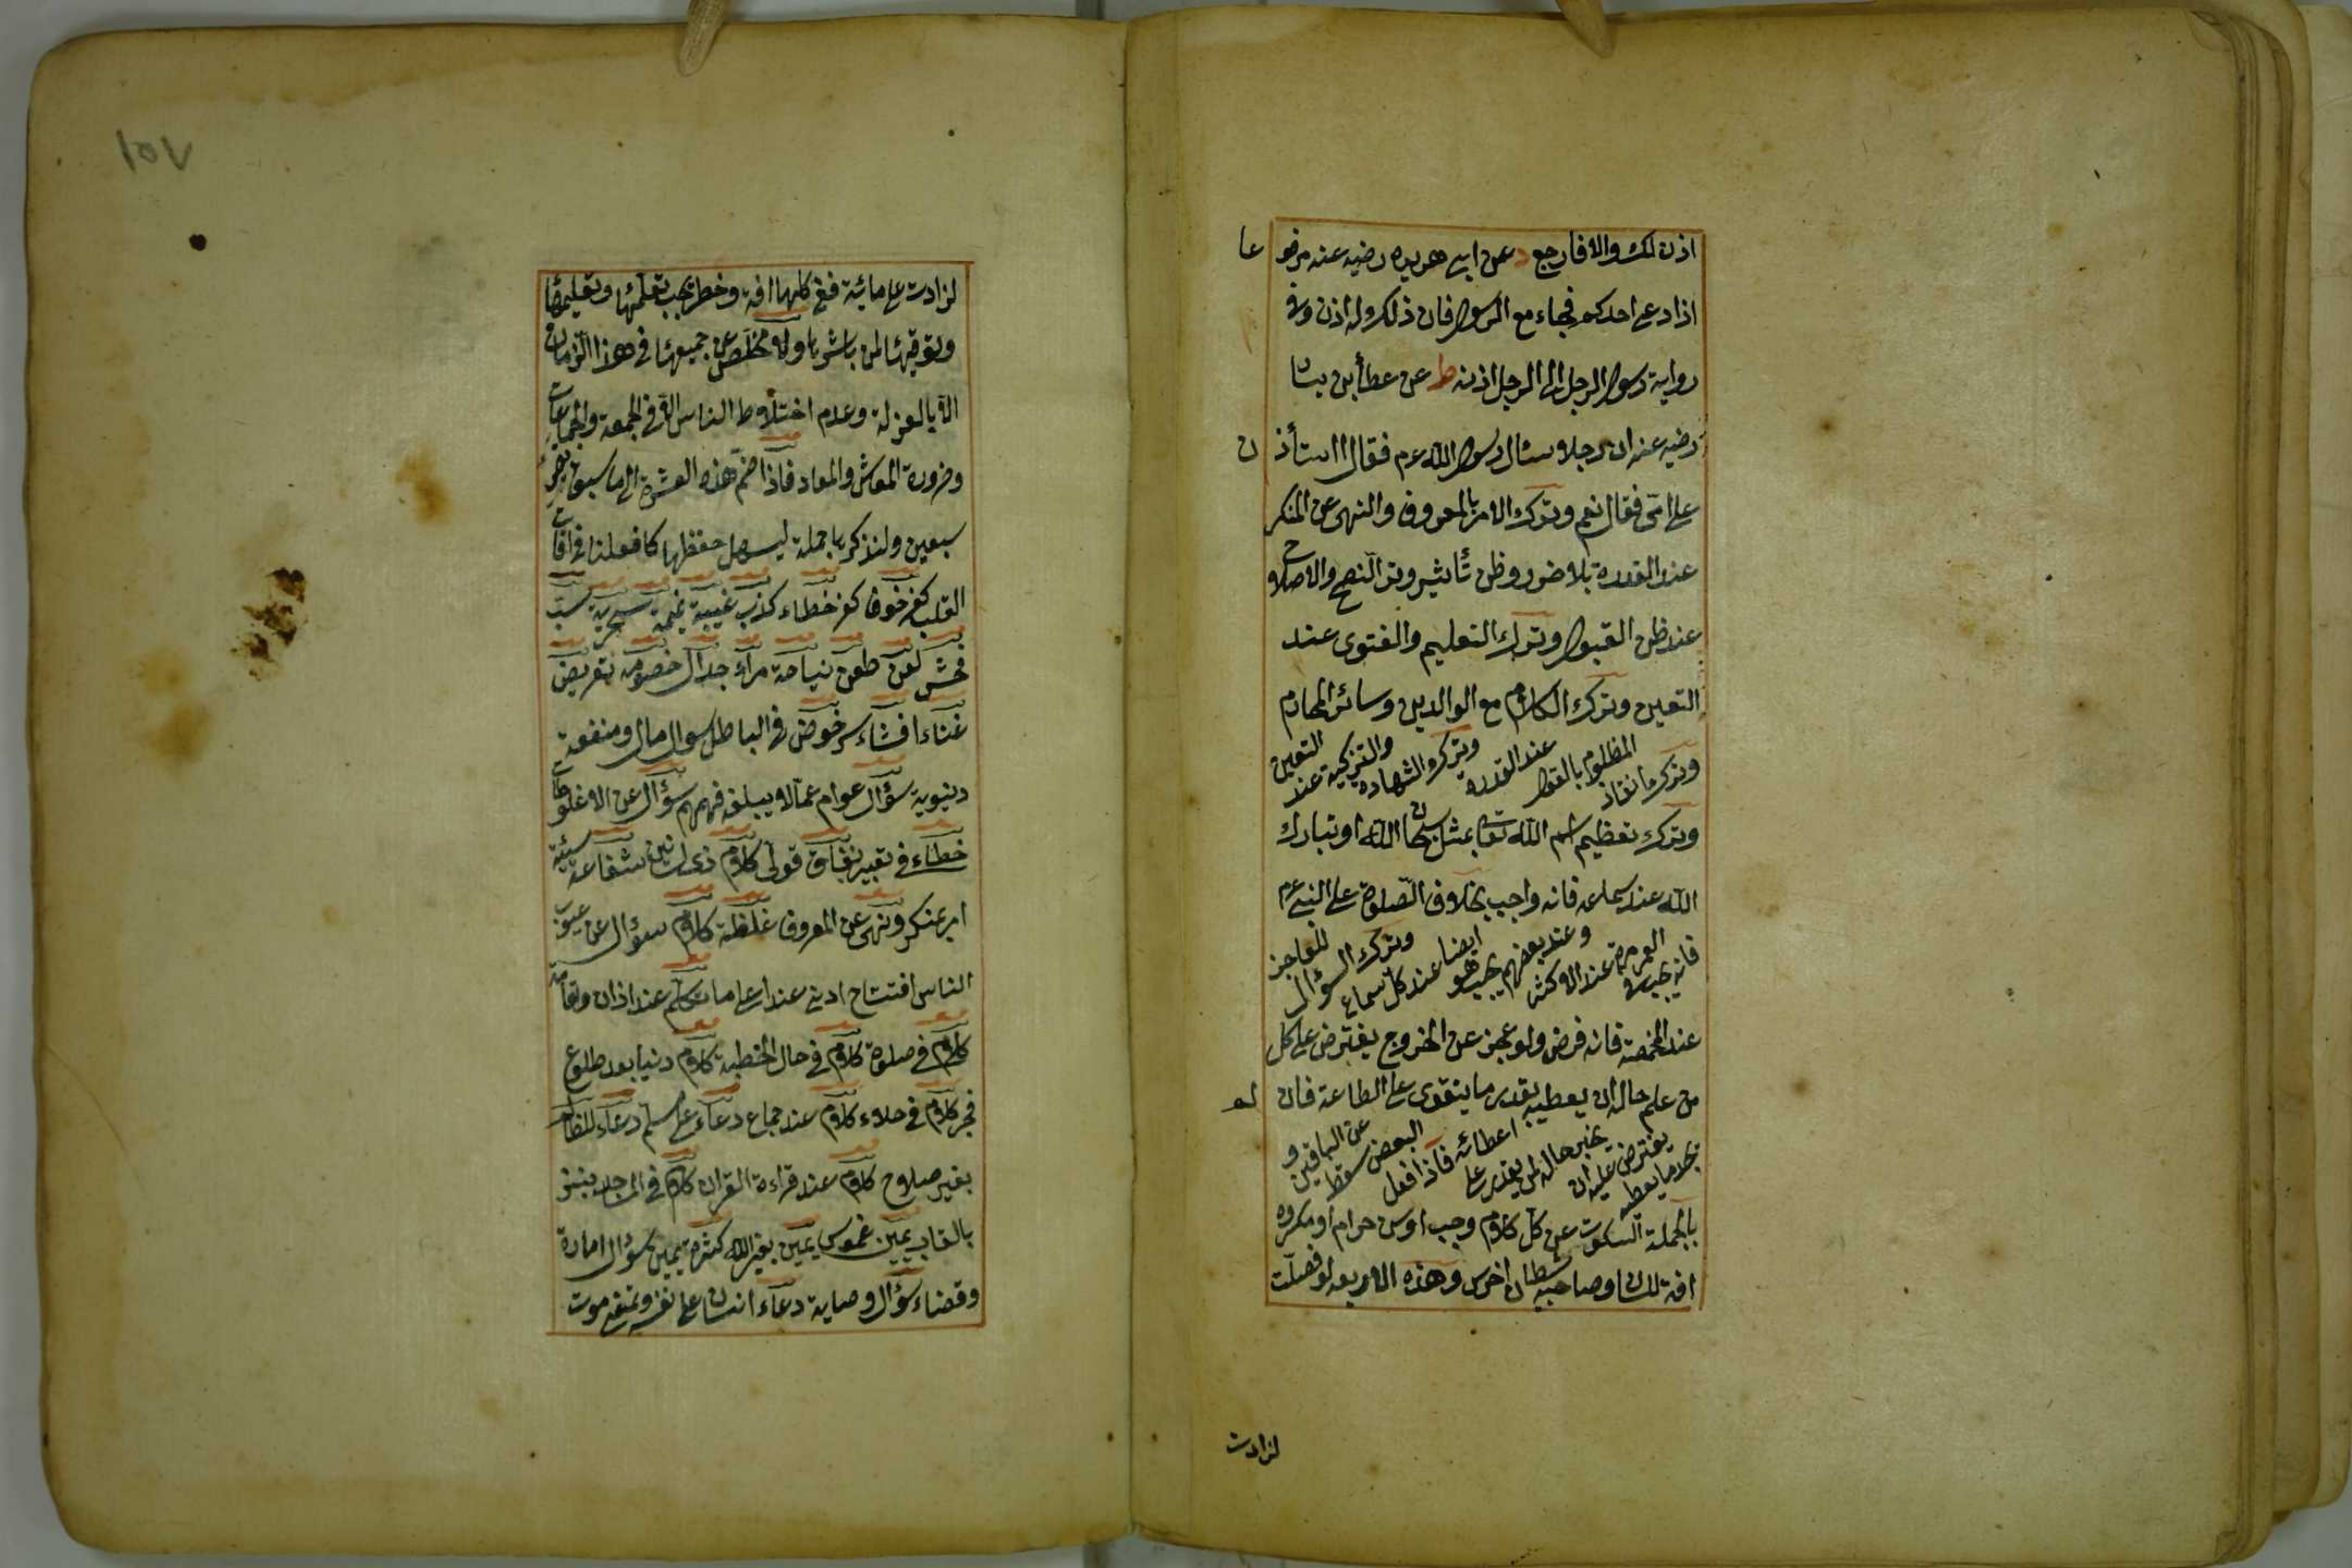 اذن لك والا فارجع د عن ابى هريره رضيه عنه مرفو عا
اذا دعى احدكم فجاء مع الرسول فان ذلك له اذن وفى
رواية رسول الرجل الى الرجل اذنه ط عن عطأ بن يسا
رضيه عنه ان رجلا سئال رسول الله عم فقال ااستأذ ن
على امى فقال نعم وترك الامر بالمعروف والنهى عن المنكر
عند القدرة بلا ضرر وظن تأثير وترك النصح والاصلاح
عند ظن القبول وترك التعليم والفتوى عند
التعين وترك الكلام مع الوالدين وسائر المحارم
وترك انقاذ المظلوم بالقول عند القدرة وترك الشهاده والتزكية عند التعين
وترك تعظيم اسم الله تعا بمثل سبحان الله او تبارك
الله عند سماعه فانه واجب بخلاف الصلوة على النبى عم
فانه يجب فى العمر مرة عند الاكثر وعند بعضهم يجب هو ايضا عند كل سماع وترك السؤال للعاجز
عند المخمصة فانه فرض ولو عجز عن الخروج يفترض على كل
من علم حاله ان يعطيه بقدر ما يتقوى على الطاعة فان لم
يجد ما يعطيه يفترض عليه ان يخبر حاله لمن يقدر على اعطائه فاذا فعل البعض سقط عن الباقين و
بالجملة السكوت عن كل كلام وجب او سن حرام او مكروه
افة اللسان وصاحبه شيطان اخرس وهذه الاربعه لو فصلت
لزادت
١٥٧
لزادت على مائة ففى كلها افة وخطر يجب تعلمها وتعليمها
وتوقيها لمن باشرها ولا مخلص عن جميعها فى هذا الزمان
الا بالعزلة وعدم اختلاط الناس الا فى الجمعة والجماعات
وضرورة المعاش والمعاد فاذا ضم هذه العشرة الى ما سبق
سبعين ولنذكرها جملة ليسهل حفظها كما فعلنا فى افات
القلب كفر خوف كفر خطاء كذب غيبة نميمة سخرية سب
فحش لعن طعن نياحة مراء جدال خصومة تعريض
غناء افشاء سر خوض فى الباطل سوال مال ومنفعة
دنيوية سؤال عوام عما لا يبلغه فهمهم سؤال عن الاغلوطات
خطاء فى تعبير نفاق قولى كلام ذى لسانين شفاعة سيئة
امر بمنكر ونهى عن المعروف غلظة كلام سؤال عن عيوب
الناس افتتاح ادنى عند اعلى ما تكلم عند اذان واقامة
كلام فى صلوة كلام فى حال الخطبة كلام دنيا بعد طلوع
فجر كلام فى خلاء كلام عند جماع دعاء على مسلم دعاء للظالم
بغير صلاح كلام عند قراءة القران كلام فى المساجد بنبز
بالقاب يمين غموس يمين بغير الله كثرة يمين سؤال امارة
وقضاء سؤال وصاية دعاء انسان على نفسه وتمنيه موت